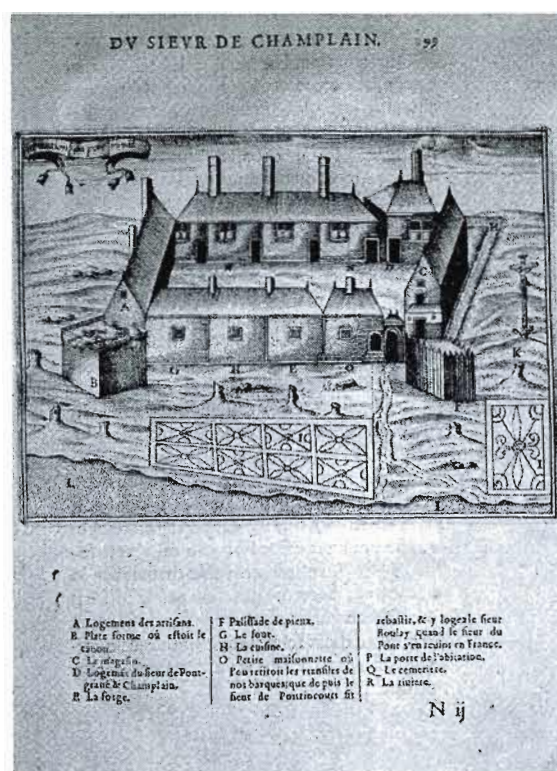 DV SIEVR DE CHAMPLAIN. 99
A
B
C
G
H
E
O
K
I
I
L
L
A Logemens des artisans.
B Plate forme où estoit le
canon.
C Le magasin.
D Logemẽt du sieur de Pont-
graué & Champlain.
E La forge.
F Palissade de pieux.
G Le four.
H La cuisine.
O Petite maisonnette où
l'on retiroit les vtansiles de
nos barques; que de puis le
sieur de Poitrincourt fit
rebastir, & y logea le sieur
Boulay quand le sieur du
Pont s'en reuint en France.
P La porte de l'abitation.
Q Le cemetiere.
R La riuiere.
N ij